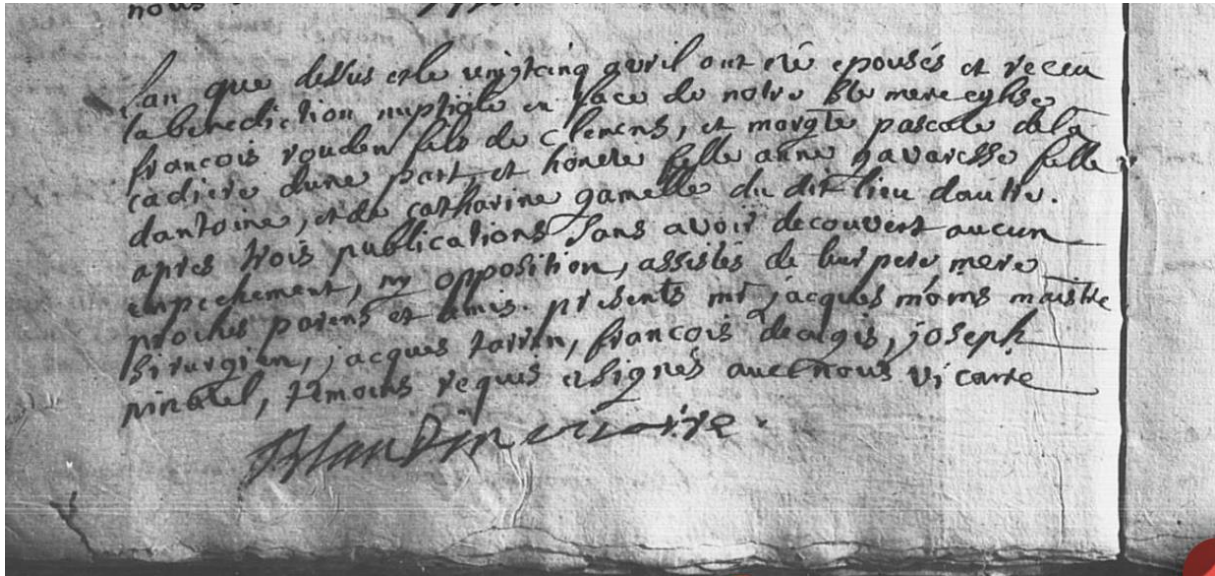 nous
lan que dessus et le vingtcinq avril ont été epousés et receu
la benediction nuptiale en face de notre Ste mere eglise
francois rouden fils de clemens, et margte pascale de la
cadiere dune part et honete fille anne gavaresse fille
dantoine, et de catharine gamelle du dit lieu dautre.
apres trois publications sans avoir decouvert aucun
empechement, ny opposition, assistés de leur pere mere
proches parens et amis. presents mr jacques maistre
sirurgien, jacques francois joseph
pinatel, témoins requis et signés avec nous vicaire
Blandin vicaire.